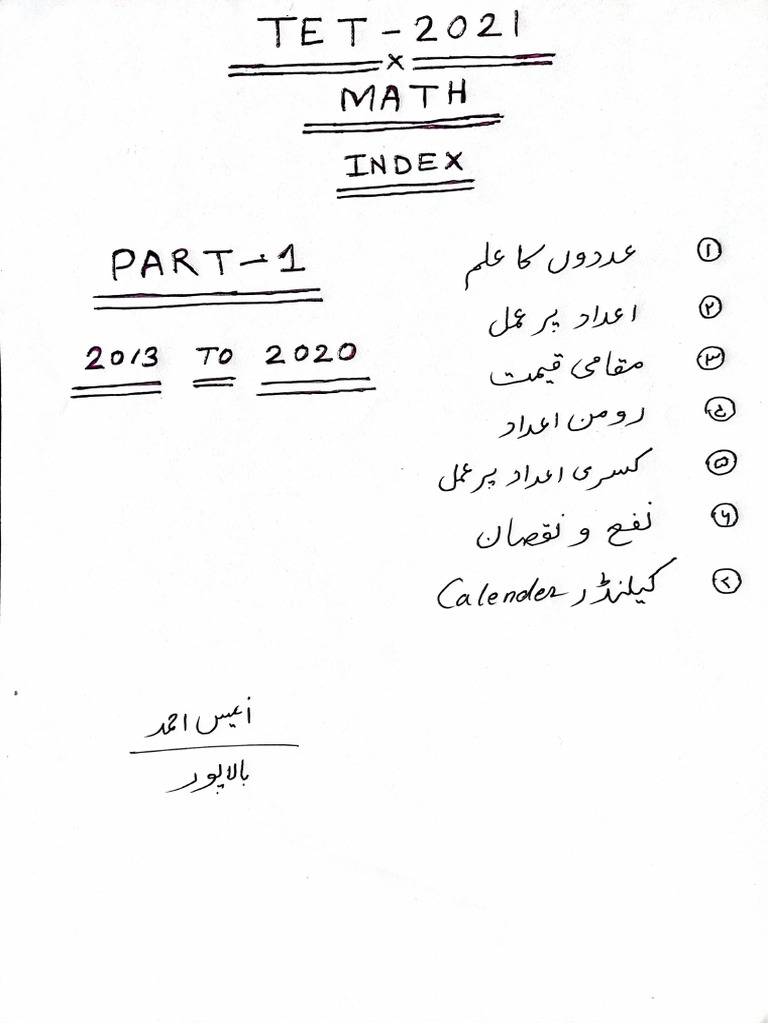 TET - 2021
x
MATH
INDEX
PART-1
2013 TO 2020
۱ عددوں کا علم
۲ اعداد پر عمل
۳ مقامی قیمت
۴ رومن اعداد
۵ کسری اعداد پر عمل
۶ نفع و نقصان
۷ کیلنڈر Calender
انیس احمد
بالاپور